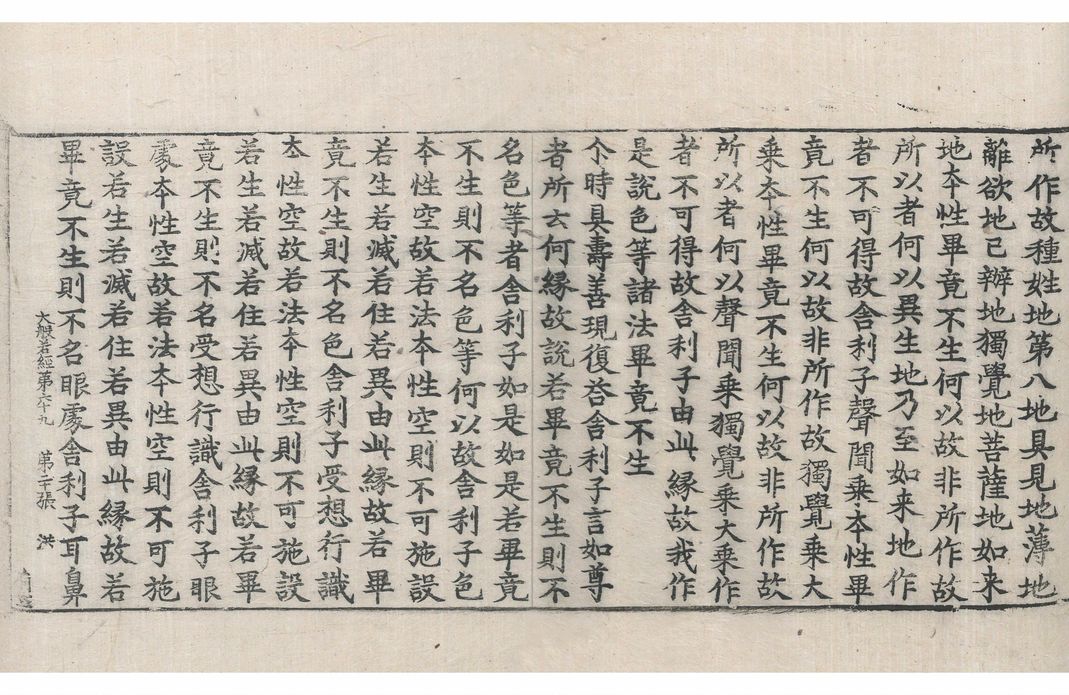 所作故種姓地第八地具見地薄地
離欲地已辦地獨覺地菩薩地如来
地夲性畢竟不生何以故非所作故
所以者何以異生地乃至如来地作
者不可得故舍利子聲聞乗夲性畢
竟不生何以故非所作故獨覺乗大
乗夲性畢竟不生何以故非所作故
所以者何以聲聞乗獨覺乗大乗作
者不可得故舍利子由此緣故我作
是說色等諸法畢竟不生
尒時具壽善現復荅舍利子言如尊
者所云何緣故說若畢竟不生則不
名色等者舍利子如是如是若畢竟
不生則不名色等何以故舍利子色
夲性空故若法夲性空則不可施設
若生若滅若住若異由此緣故若畢
竟不生則不名色舍利子受想行識
夲性空故若法夲性空則不可施設
若生若滅若住若異由此緣故若畢
竟不生則不名受想行識舍利子眼
處夲性空故若法夲性空則不可施
設若生若滅若住若異由此緣故若
畢竟不生則不名眼處舍利子耳鼻
大般若經第六十九 第二十張 洪